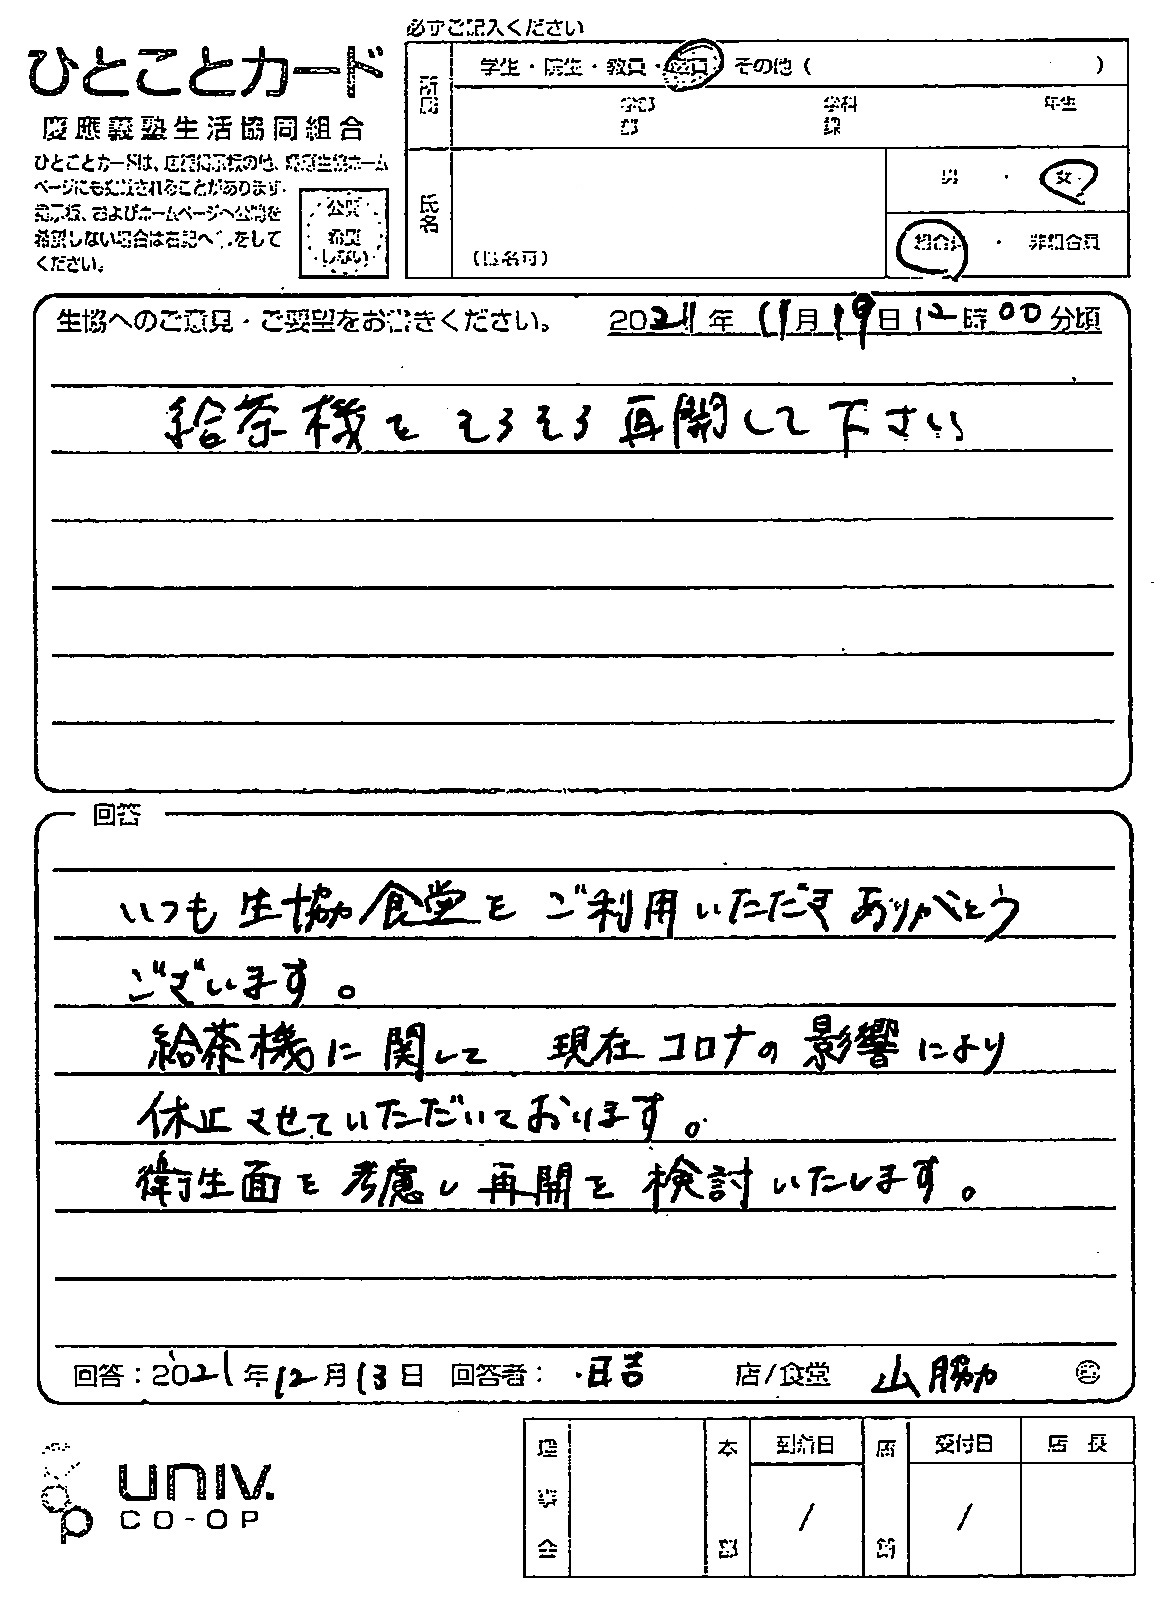 必ずご記入ください
ひとことカード
慶應義塾生活協同組合
ひとことカードは、店舗掲示板の他、慶應生協ホーム
ページにも記載されることがあります。
掲示板、およびホームページへ公開を
希望しない場合は右記へ✓をして
ください。
公開
希望
しない
所属
学生・院生・教員・職員・その他（　）
学部　学科　年生
部　課
氏名
（匿名可）
男・女
組合員・非組合員
生協へのご意見・ご要望をお書きください。 2021年11月19日12時00分頃
給茶機をそろそろ再開して下さい
回答
いつも生協食堂をご利用いただきありがとう
ございます。
給茶機に関して 現在コロナの影響により
休止させていただいております。
衛生面を考慮し再開を検討いたします。
回答：2021年12月13日 回答者： 日吉 店/食堂 山脇 ㊞
UNIV.
CO-OP
理事会
本部
到着日
/
店舗
受付日
/
店長